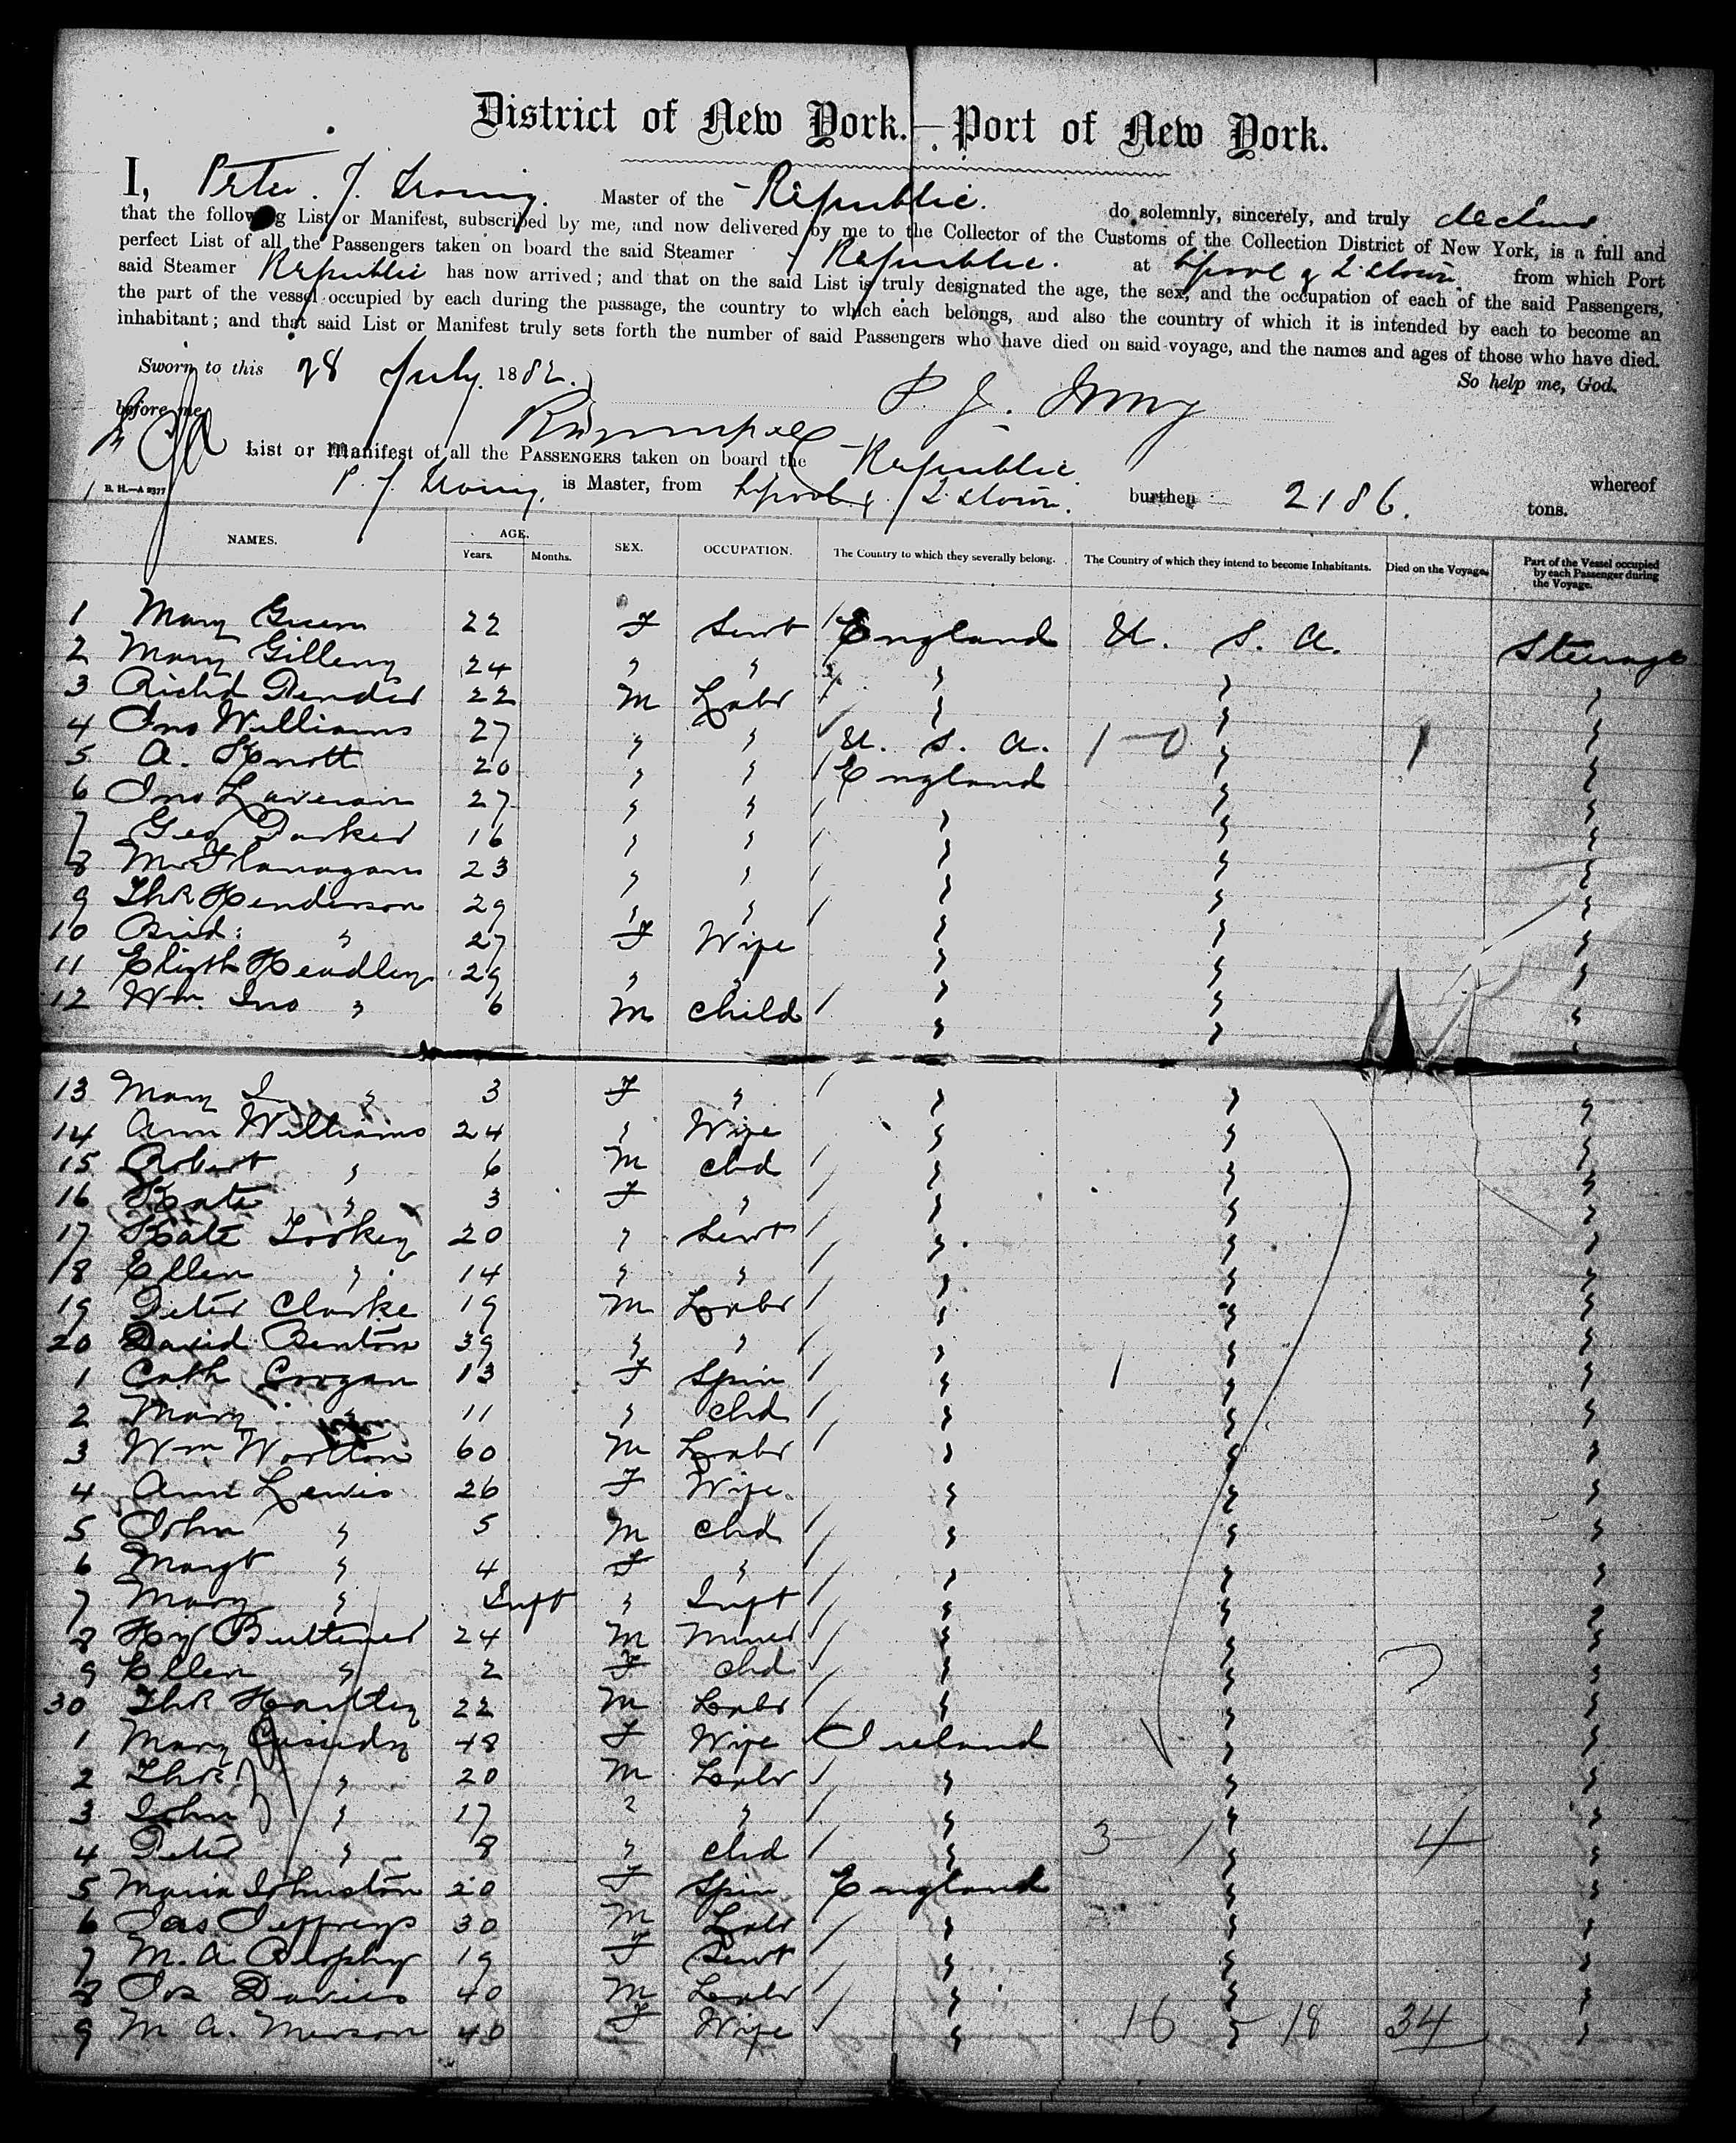 District of New York.—Port of New York.
I, Peter J. Irving. Master of the Republic. do solemnly, sincerely, and truly declare
that the following List or Manifest, subscribed by me, and now delivered by me to the Collector of the Customs of the Collection District of New York, is a full and
perfect List of all the Passengers taken on board the said Steamer Republic. at Lpool & Q.town. from which Port
said Steamer Republic has now arrived; and that on the said List is truly designated the age, the sex, and the occupation of each of the said Passengers,
the part of the vessel occupied by each during the passage, the country to which each belongs, and also the country of which it is intended by each to become an
inhabitant; and that said List or Manifest truly sets forth the number of said Passengers who have died on said voyage, and the names and ages of those who have died.
So help me, God.
Sworn to this 28 July 1882.
P. J. Irving
before me
List or Manifest of all the PASSENGERS taken on board the Republic whereof
B. H.—A 2377
P. J. Irving, is Master, from Lpool & Q.town. burthen 2186. tons.
NAMES. AGE. Years. Months. SEX. OCCUPATION. The Country to which they severally belong. The Country of which they intend to become Inhabitants. Died on the Voyage. Part of the Vessel occupied by each Passenger during the Voyage.
1 Mary 22 F Servt England U. S. A. Steerage
2 Mary Gilleny 24 " " " " "
3 Richd 22 M Labr " " "
4 Jno Williams 27 " " U. S. A. 1-0 " 1 "
5 A. Knott 20 " " England " "
6 Jno 27 " " " " "
7 Geo Parker 16 " " " " "
8 Flanagan 23 " " " " "
9 Thos Henderson 29 " " " " "
10 Brid: " 27 F Wife " " "
11 Elizth Headley 29 " " " " "
12 Wm. Jno " 6 M Child " " "
13 Mary J. " 3 F " " " "
14 Ann Williams 24 " Wife " " "
15 Robert " 6 M chd " " "
16 Kate " 3 F " " " "
17 Kate 20 " Servt " " "
18 Ellen " 14 " " " " "
19 Peter Clarke 19 M Labr " " "
20 David Benton 39 " " " " "
1 Cath Grogan 13 F Spin " " "
2 Mary " 11 " chd " " "
3 Wm Wootton 60 M Labr " " "
4 Ann Lewis 26 F Wife " " "
5 John " 5 M chd " " "
6 Margt " 4 F " " " "
7 Mary " Inft " Inft " " "
8 Hy 24 M Miner " " "
9 Ellen " 2 F chd " " "
30 Thos Hartley 22 M Labr " " "
1 Mary Casiedy 48 F Wife Ireland " "
2 Thos " 20 M Labr " " "
3 John " 17 " " " " "
4 Peter " 8 " chd " 3 1 " 4 "
5 Maria Johnston 20 F Spin England " "
6 Jas Jeffreys 30 M Labr " " "
7 M. A. Brophy 19 F Servt " " "
8 Jos Davies 40 M Labr " " "
9 M A. 40 F Wife " 16 " 18 34 "